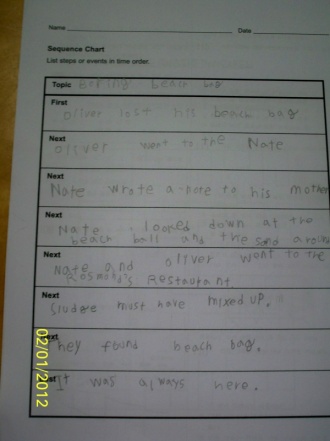 Name Date
Sequence Chart
List steps or events in time order.
Topic Boring beach bag
First
Oliver lost his beach bag
Next
Oliver went to the Nate
Next
Nate wrote a note to his mother
Next
Nate looked down at the
beach ball and the sand around
Next
Nate and Oliver went to the
Rosmond's Restaurant.
Next
Sludge must have mixed up.
Next
They found beach bag.
Last
It was always here.
02/01/2012